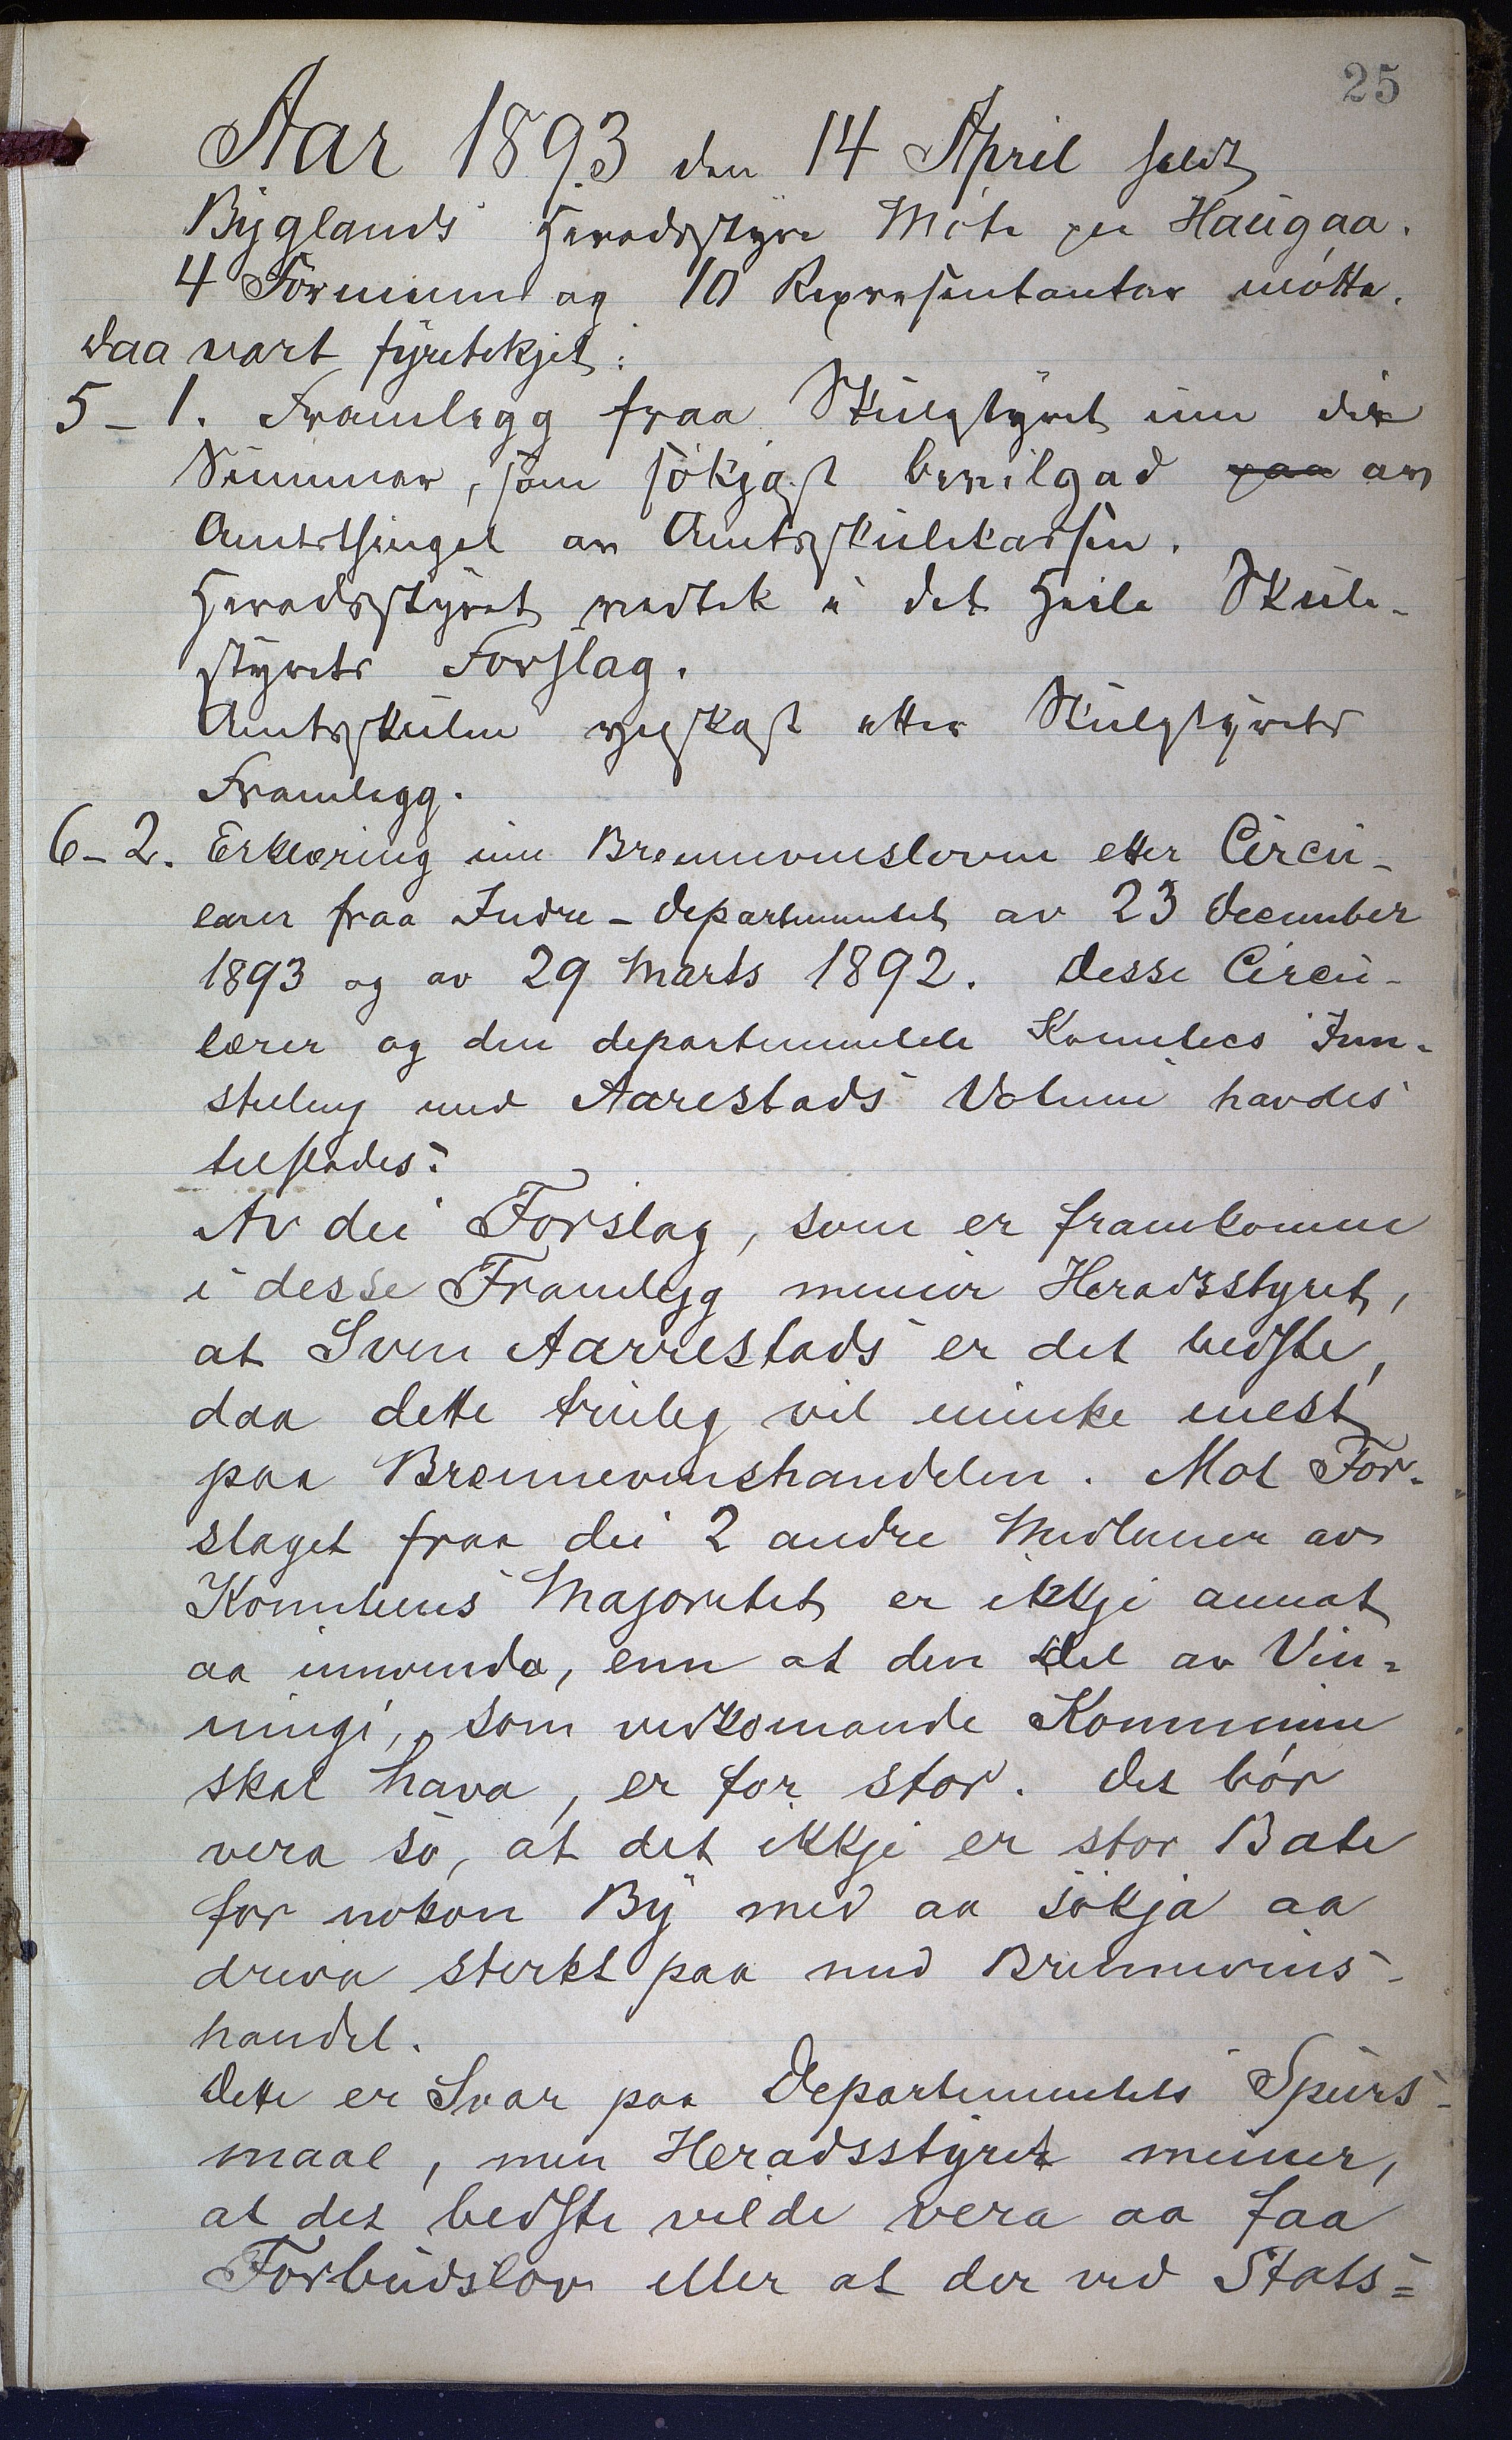 25
Aar 1893 den 14 April heldt
Byglands Heradsstyre Móte på Haugaa.
4 Formenn og 10 Representantar mótte.
Daa vart fyretekjet:
5 - 1. Framlegg fraa Skulestyret um dei
Summar, som sökjast bevilgad paa av
Amtsthinget av Amtsskulekassen.
Heradsstyret vedtek i det Heile Skule-
styrets Forslag.
Amtsskulen ynskast etter Skulestyrets
Framlegg.
6 - 2. Erklæring um Brennevinsloven etter Circu-
lærer fraa Indre-Departementet av 23 December
1893 og av 29 Marts 1892. Desse Circu-
lærer og den departementele Komitees Inn-
stelling med Aarestads Votum havdes
tilstades:
Av dei Forslag, som er framkomne
i desse Framlegg meiner Heradsstyret,
at Sven Aarrestads er det bedste,
daa dette truleg vil minke mest
paa Brennevinshandelen. Mot For-
slaget fraa dei 2 andre Medlemer av
Komiteens Majoritet er ikkje annat
aa innvenda, enn at den Del av Vin-
ningi, som vedkomande Kommune
skal hava, er for stor. Det bór
vera so, at det ikkje er stor Bate
for nokon By med aa sökja aa
driva sterkt paa med Brennevins-
handel.
Dette er Svar paa Departementets Spurs-
maal, men Heradsstyret meiner,
at det bedste vilde vera aa faa
Forbudslov eller at der ved Stats-